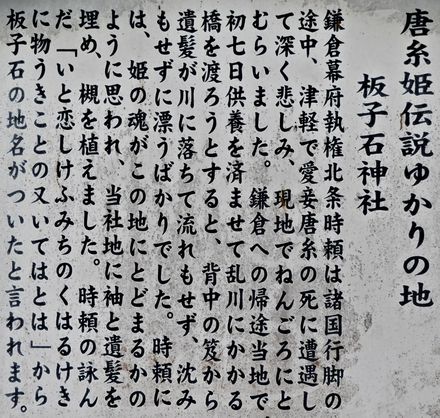 唐糸姫伝説ゆかりの地
板子石神社
鎌倉幕府執権北条時頼は諸国行脚の
途中、津軽で愛妾唐糸の死に遭遇し
て深く悲しみ、現地でねんごろにと
むらいました。鎌倉への帰途当地で
初七日供養を済ませて乱川にかかる
橋を渡ろうとすると、背中の笈から
遺髪が川に落ちて流れもせず、沈み
もせずに漂うばかりでした。時頼に
は、姫の魂がこの地にとどまるかの
ように思われ、当社地に袖と遺髪を
埋め、槻を植えました。時頼の詠ん
だ「いと恋しけふみちのくはるけき
に物うきことの又いてはとは」から
板子石の地名がついたと言われます。